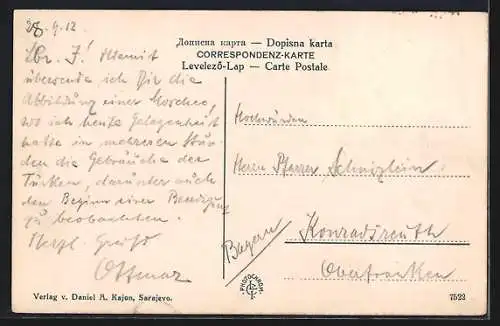 28.9.12.
Lbr. J! Hiermit
übersende ich Dir die
Abbildung einer Moschee,
wo ich heute Gelegenheit
hatte in mehreren
den die Gebräuche der
Türken, darunter auch
den Beginn einer
zu beobachten.
Herzl. Grüße
Ottmar
Дописна карта — Dopisna karta
CORRESPONDENZ-KARTE
Levelező-Lap — Carte Postale
Hochwürden
Herrn Pfarrer Schnizlein
Konradsreuth
Bayern
Oberfranken
PHOTOCHROM.
Verlag v. Daniel A. Kajon, Sarajevo.
7523